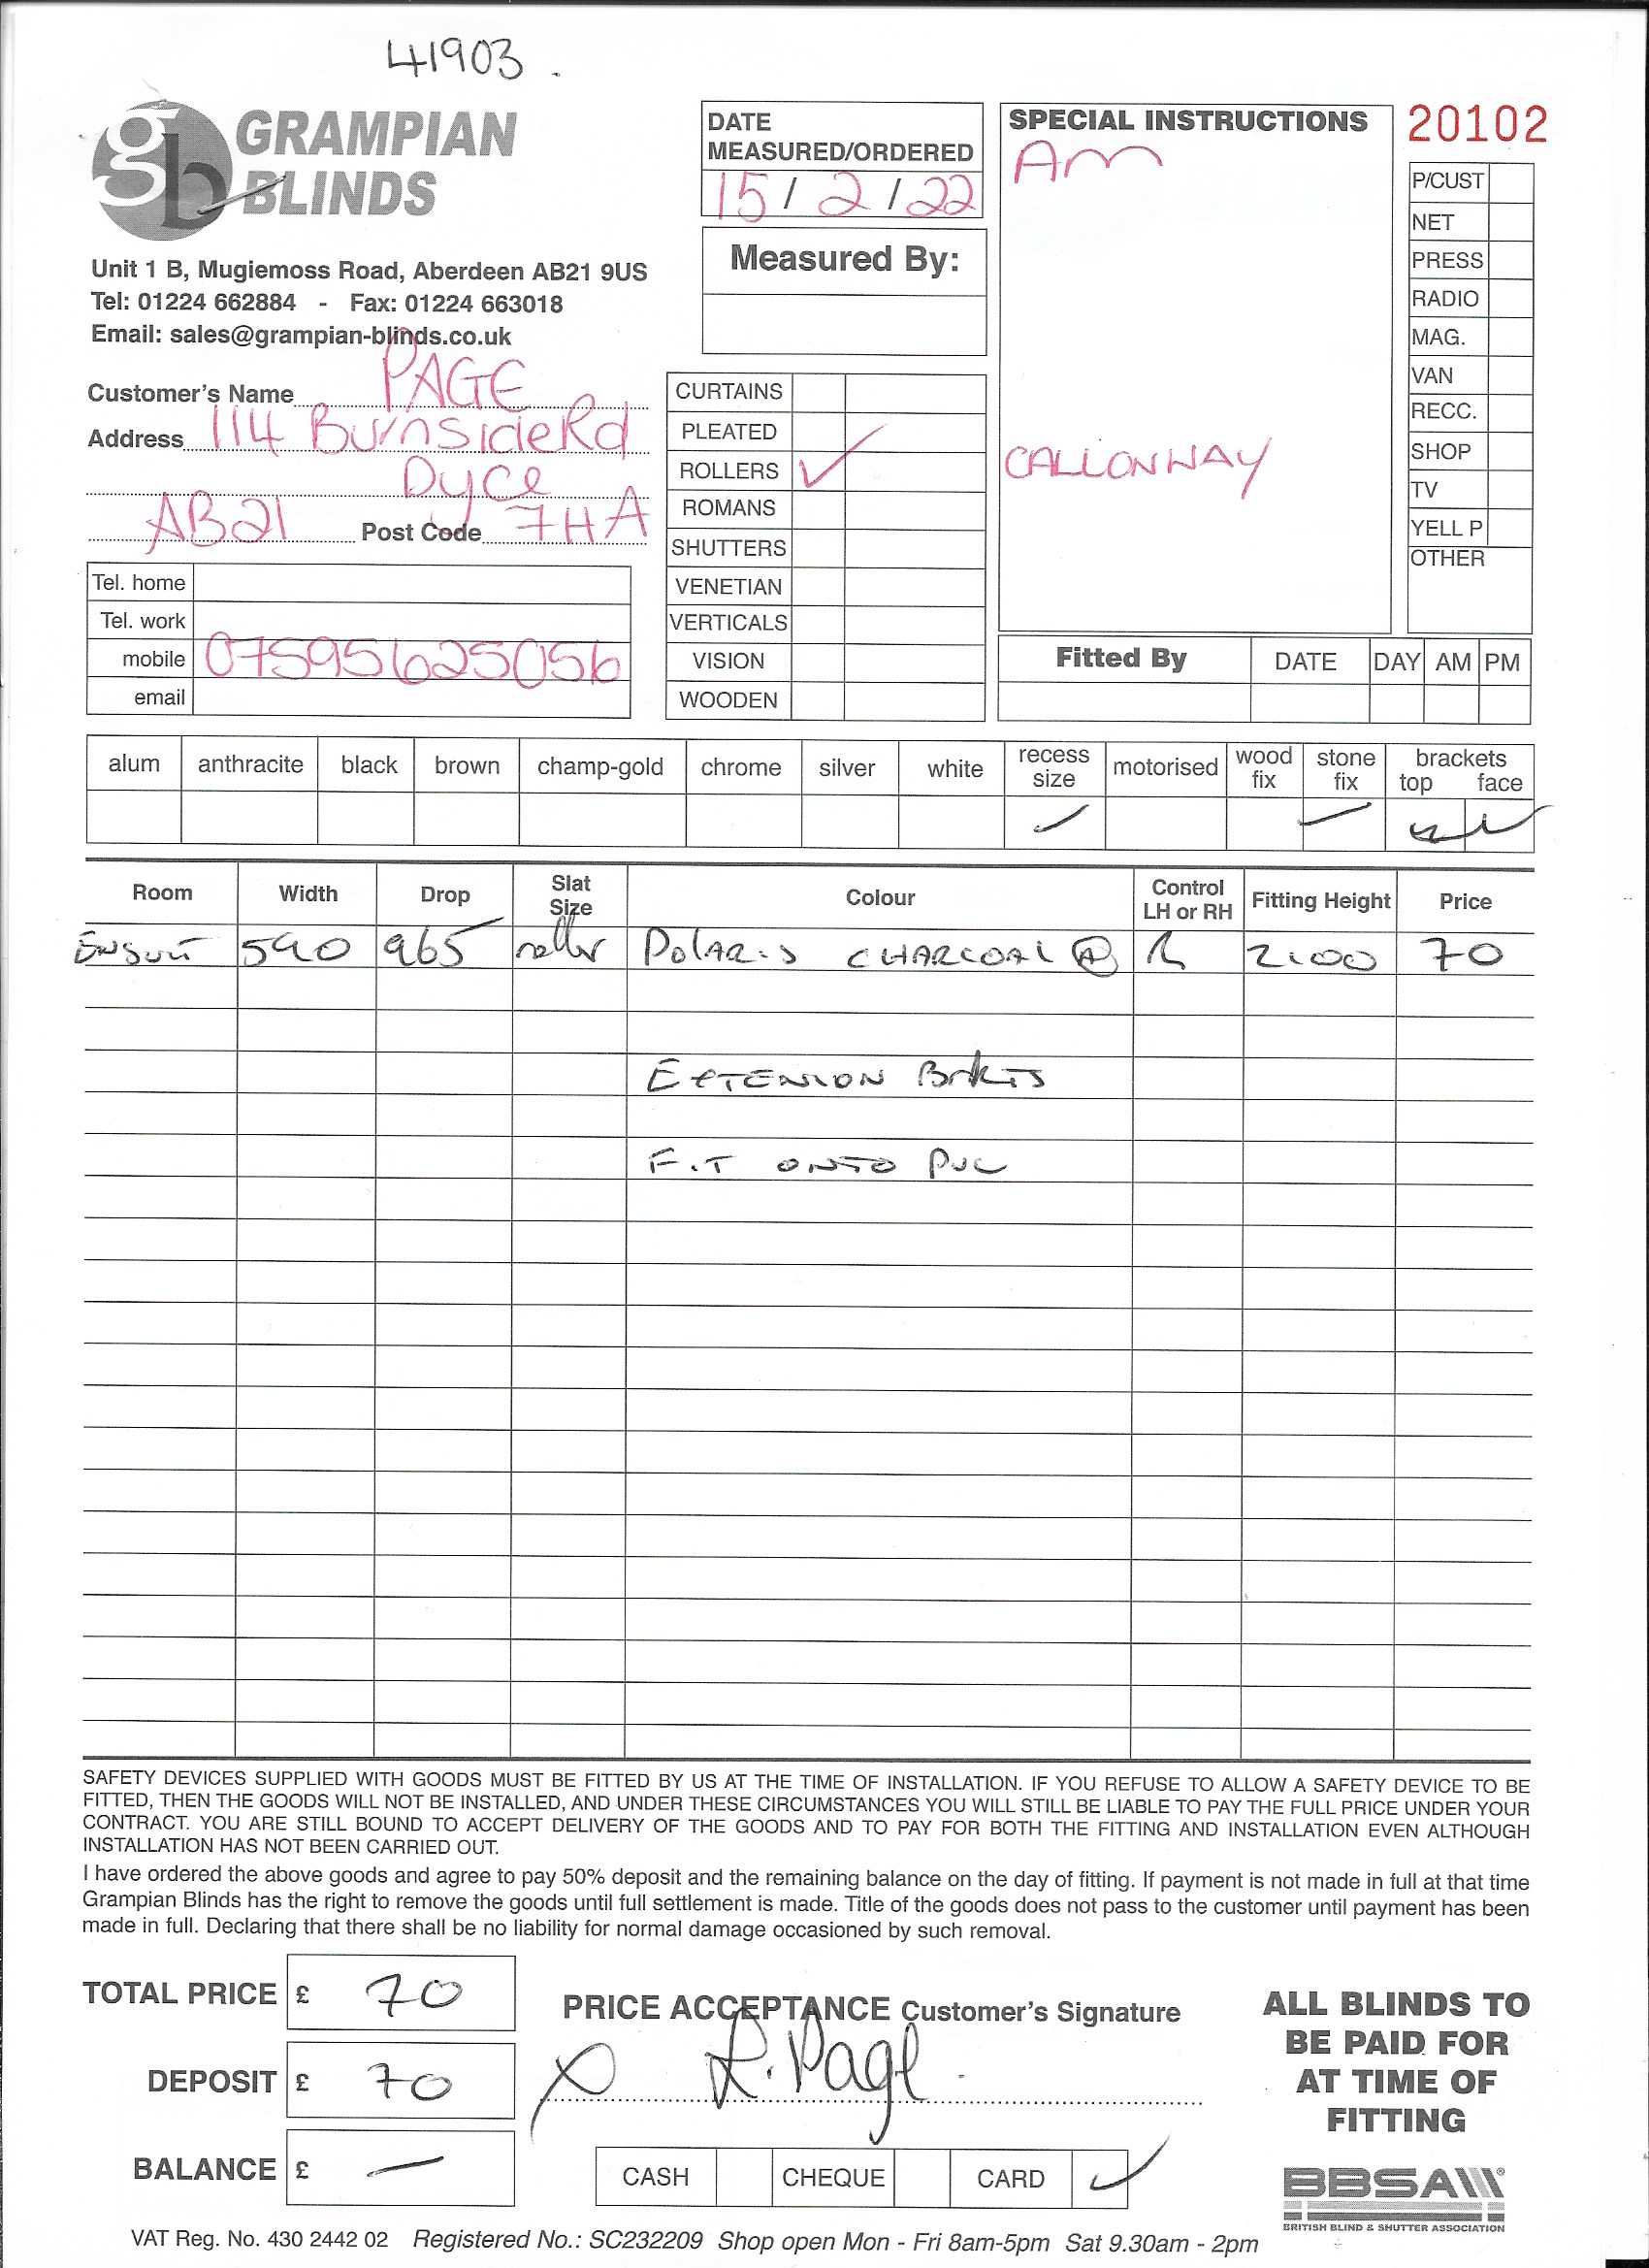 41903.
gb GRAMPIAN
BLINDS
Unit 1 B, Mugiemoss Road, Aberdeen AB21 9US
Tel: 01224 662884 - Fax: 01224 663018
Email: sales@grampian-blinds.co.uk
Customer's Name PAGE
Address 114 Burnside Rd
Dyce
AB21 Post Code 7HA
Tel. home
Tel. work
mobile 07595625056
email
DATE
MEASURED/ORDERED
15/2/22
Measured By:
CURTAINS
PLEATED
ROLLERS ✓
ROMANS
SHUTTERS
VENETIAN
VERTICALS
VISION
WOODEN
SPECIAL INSTRUCTIONS
AM
CALLONWAY
20102
P/CUST
NET
PRESS
RADIO
MAG.
VAN
RECC.
SHOP
TV
YELL P
OTHER
Fitted By DATE DAY AM PM
alum anthracite black brown champ-gold chrome silver white recess size motorised wood fix stone fix brackets top face
✓ ✓ ✓
Room Width Drop Slat Size Colour Control LH or RH Fitting Height Price
Ensuit 590 965 roller Polaris CHARCOAL Ⓐ R 2100 70
EXTENSION BrKTS
FIT ONTO PVC
SAFETY DEVICES SUPPLIED WITH GOODS MUST BE FITTED BY US AT THE TIME OF INSTALLATION. IF YOU REFUSE TO ALLOW A SAFETY DEVICE TO BE
FITTED, THEN THE GOODS WILL NOT BE INSTALLED, AND UNDER THESE CIRCUMSTANCES YOU WILL STILL BE LIABLE TO PAY THE FULL PRICE UNDER YOUR
CONTRACT. YOU ARE STILL BOUND TO ACCEPT DELIVERY OF THE GOODS AND TO PAY FOR BOTH THE FITTING AND INSTALLATION EVEN ALTHOUGH
INSTALLATION HAS NOT BEEN CARRIED OUT.
I have ordered the above goods and agree to pay 50% deposit and the remaining balance on the day of fitting. If payment is not made in full at that time
Grampian Blinds has the right to remove the goods until full settlement is made. Title of the goods does not pass to the customer until payment has been
made in full. Declaring that there shall be no liability for normal damage occasioned by such removal.
TOTAL PRICE £ 70
DEPOSIT £ 70
BALANCE £ —
PRICE ACCEPTANCE Customer's Signature
X L. Page.
CASH CHEQUE CARD ✓
ALL BLINDS TO
BE PAID FOR
AT TIME OF
FITTING
BBSA
BRITISH BLIND & SHUTTER ASSOCIATION
VAT Reg. No. 430 2442 02 Registered No.: SC232209 Shop open Mon - Fri 8am-5pm Sat 9.30am - 2pm